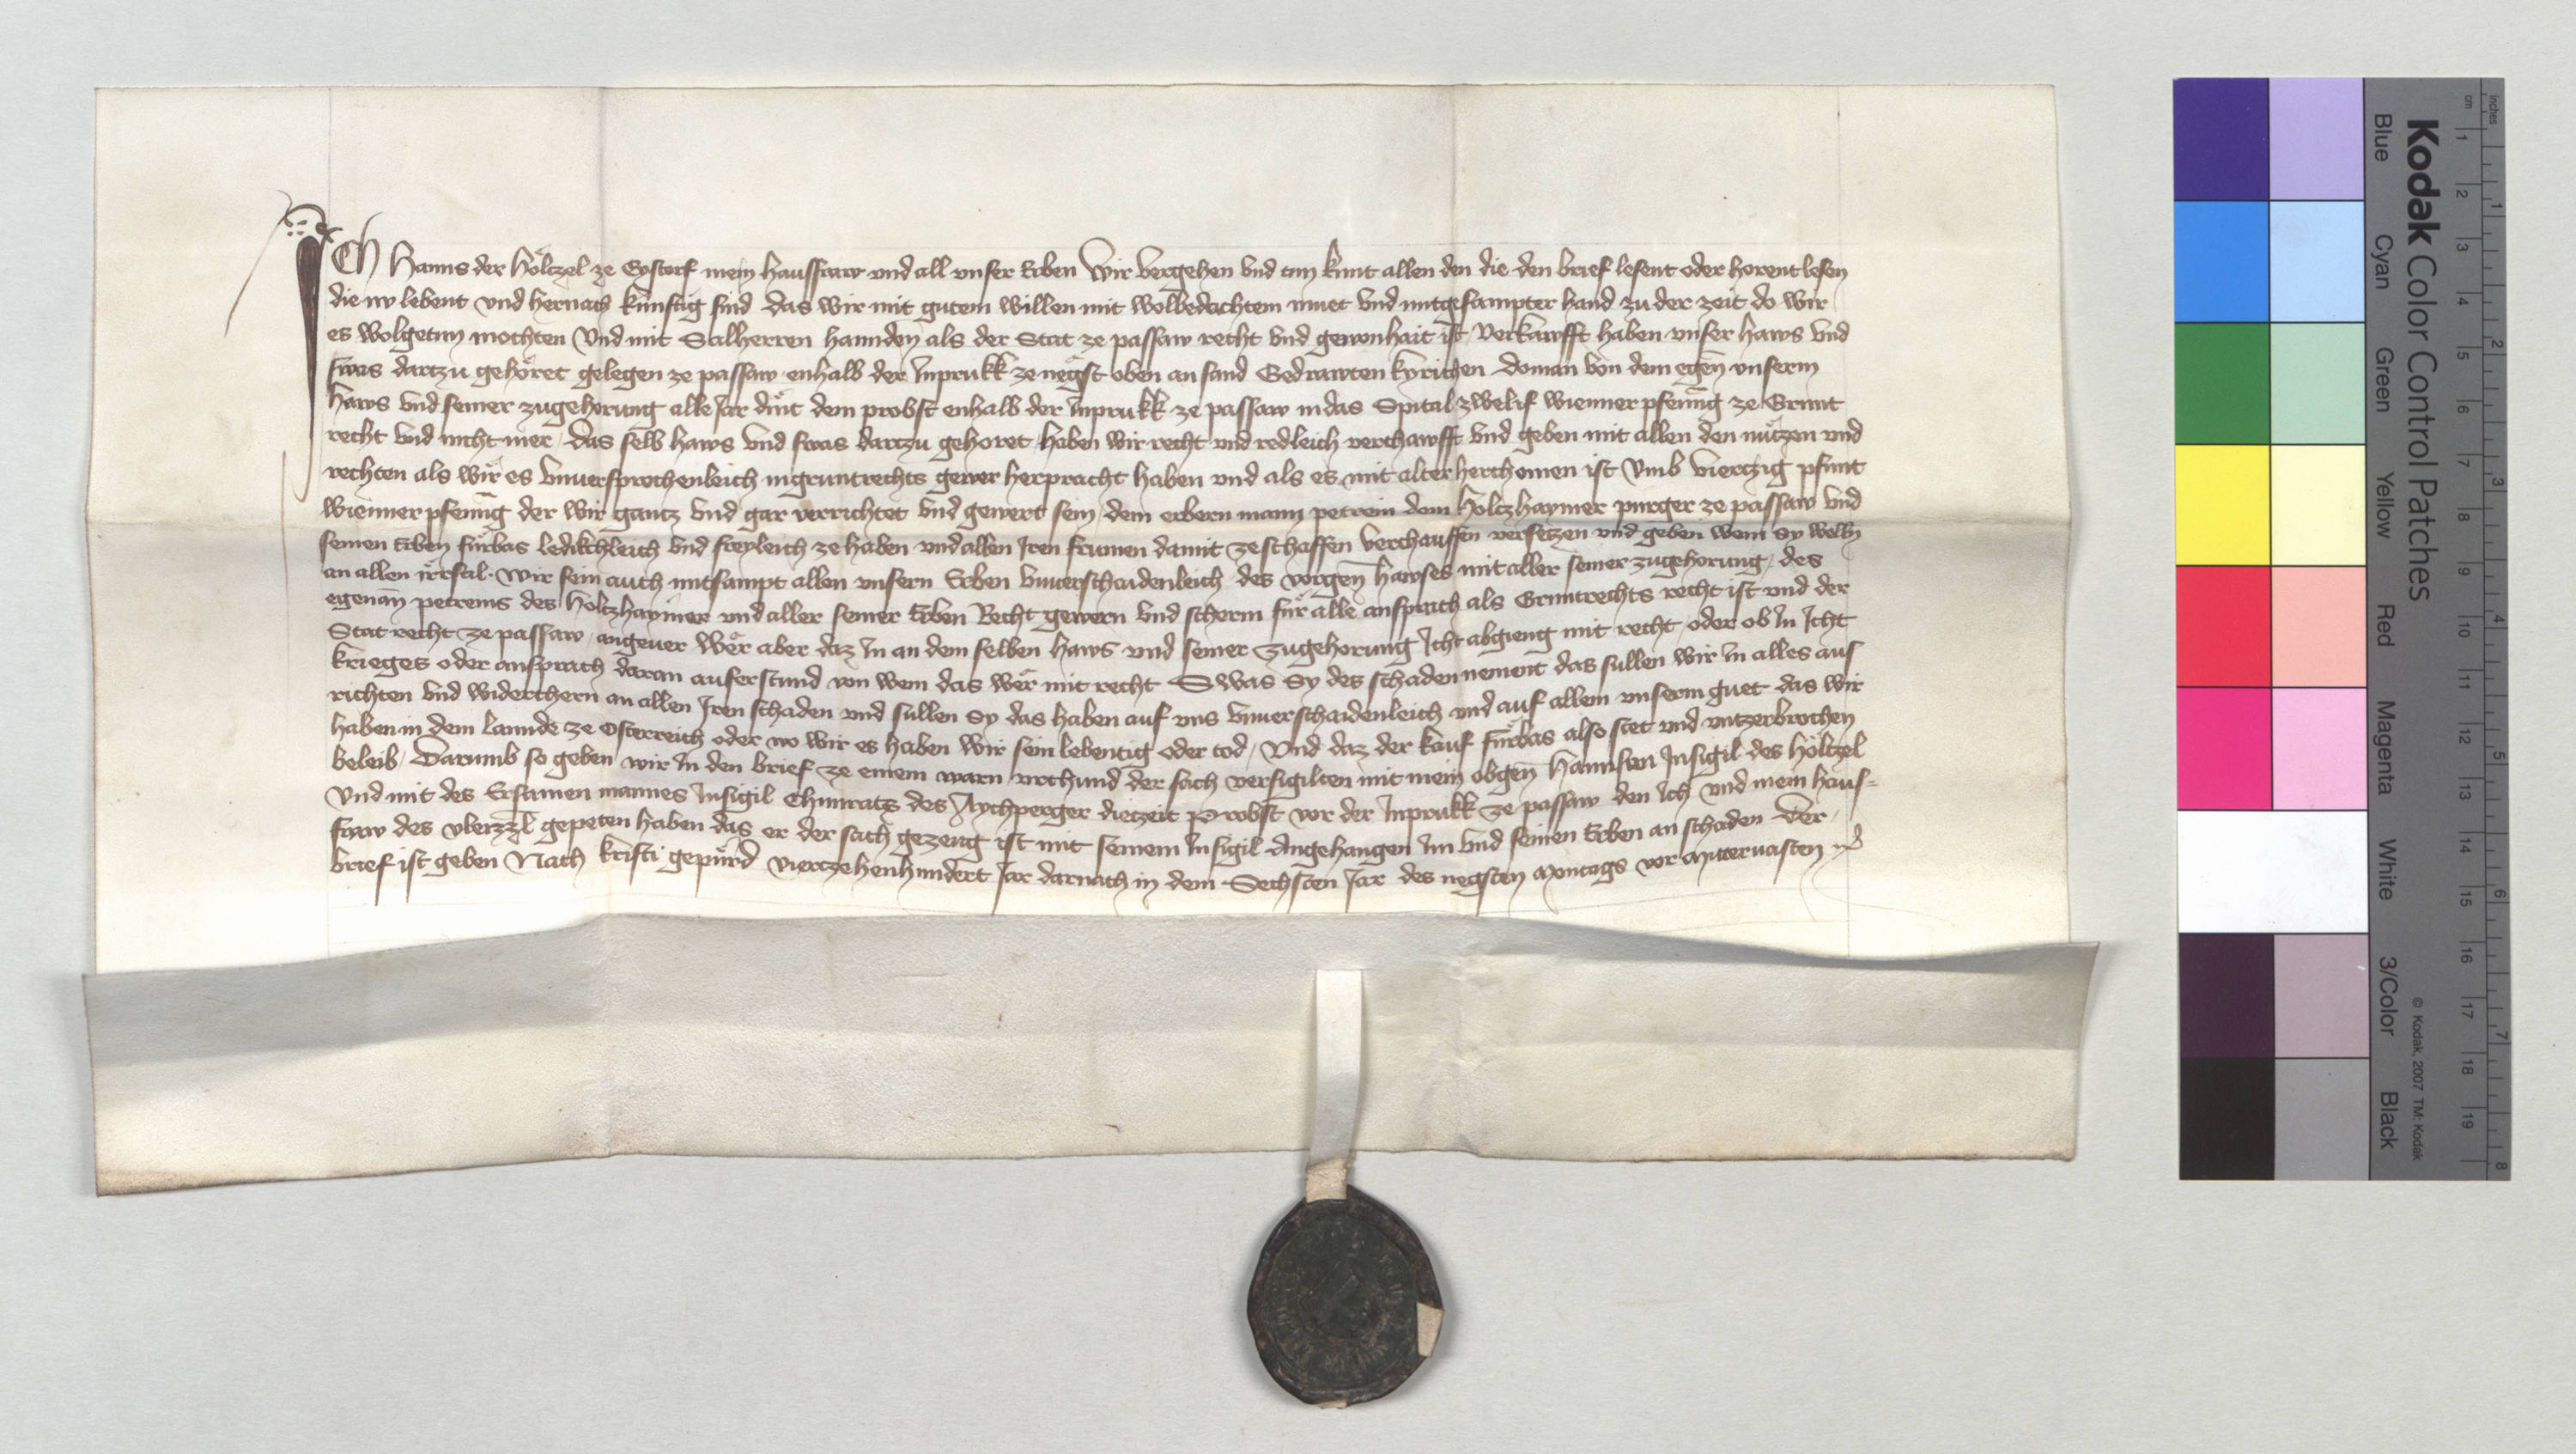 ICh Hanns der Höltzel ze Eystorf mein hausfraw vnd all vnser Erben Wir vergehen vnd tun kunt allen den die den brief lesent oder horent lesen
die nv lebent vnd hernach künftig sind das wir mit gutem willen mit wolbedachtem muet vnd mitgesampter hand zu der zeit do wir
es wolgetun mochten Vnd mit Salherren hannden als der Stat ze passaw recht vnd gewonhait ist Verkawfft haben vnser haws vnd
swas dartzu gehöret gelegen ze passaw enhalb der Inprukk ze negst oben an sand Gedrawten kyrichen Doman von dem egen̄ vnserm
haws vnd seiner zugehorung alle Jar dint dem probst enhalb der Inprukk ze passaw in das Spital zwelif wienner pfennig ze Grunt
recht vnd nicht mer Das selb haws vnd swas dartzu gehoret haben wir recht vnd redleich verchawfft vnd geben mit allen den nützen vnd
rechten als wir es vnuersprochenleich in gruntrechts gewer herpracht haben vnd als es mit alter herchomen ist Vmb viertzig pfunt
wienner pfennig der wir gantz vnd gar verrichtet vnd gewert sein dem erbern mann petrein dem Holtzhaymer purger ze passaw vnd
seinen Erben fürbas ledikchleich vnd freyleich ze haben vnd allen Iren frumen damit ze schaffen verchauffen versetzen vnd geben wem Sy welln
an allen irrsal. Wir sein auch mitsampt allen vnsern Erben vnuerschaidenleich des vorgen̄ hawses mit aller seiner zugehorung des
egenan̄ petreins des Holtzhaymer vnd aller seiner Erben Recht gewern vnd scherm für alle ansprach als Gruntrechts recht ist vnd der
Stat recht ze passaw angeuer Wer aber daz In an dem selben haws vnd seiner zugehorung Icht abgieng mit recht oder ob In Icht
krieges oder ansprach daran auferstund von wem das wer mit recht Swas Sy des schaden nement das sullen wir In alles aus
richten vnd widerchern an allen Iren schaden vnd sullen Sy das haben auf vns vnuerschaidenleich vnd auf allem vnserm guet das wir
haben in dem Lannde ze Osterreich oder wo wir es haben wir sein lebentig oder tod Vnd daz der kauf fürbas also stet vnd vntzerbrochen
beleib Darumb so geben wir In den brief ze einem warn vrchund der sach versigilten mit mein obgen̄ Hannsen Insigil des Höltzel
Vnd mit des Ersamen mannes Insigil Chunrats des Aychperger dietzeit Probst vor der Inprukk ze passaw den Ich vnd mein haus-
fraw des vberzzl gepeten haben das er der sach gezeug ist mit seinem Insigil Angehangen Im vnd seinen Erben an schaden Der
brief ist geben Nach kristi gepürd viertzehenhundert Jar darnach in dem Sechsten Jar des negsten Montags vor Mitteruasten
Kodak Color Control Patches
© Kodak, 2007 TM: Kodak
Blue Cyan Green Yellow Red Magenta White 3/Color Black
inches 1 2 3 4 5 6 7 8
cm 1 2 3 4 5 6 7 8 9 10 11 12 13 14 15 16 17 18 19